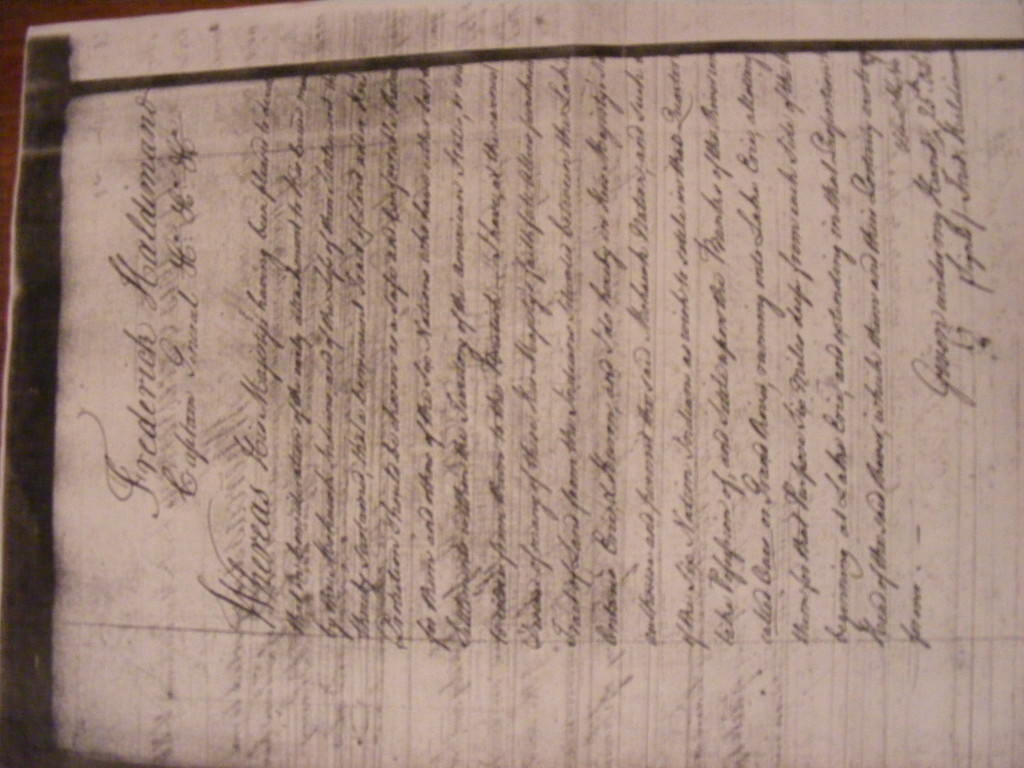 Frederick Haldimand
Captain General &c &c &c
Whereas His Majesty having been pleased to direct
that in Consideration of the early attachment to his Cause
by the Mohawk Indians and of the loss of their Settlement
thereby sustained, that a Convenient Tract of Land under His
Protection should be chosen as a Safe and Comfortable Retreat
for them and others of the Six Nations who have either lost their
Settlements within the Territory of the American States, or wish
to retire from them to the British I have, at the earnest
Desire of many of these His Majesty's faithfull Allies purchased
Tract of Land from the Indians situated between the Lakes
Ontario Erie & Huron, and I do hereby in His Majesty's
authorise and permit the said Mohawk Nation, and such
of the Six Nation Indians as wish to settle in that Quarter
take Possession of, and Settle upon the Banks of the River
called Ours or Grand River, running into Lake Erie, allotting
them for that Purpose Six Miles deep from each Side of the
beginning at Lake Erie, and extending in that Proportion
Head of the said River, which them and their Posterity are to
for ever. —
Given under my Hand 25th Oct
Signed Fred: Haldimand